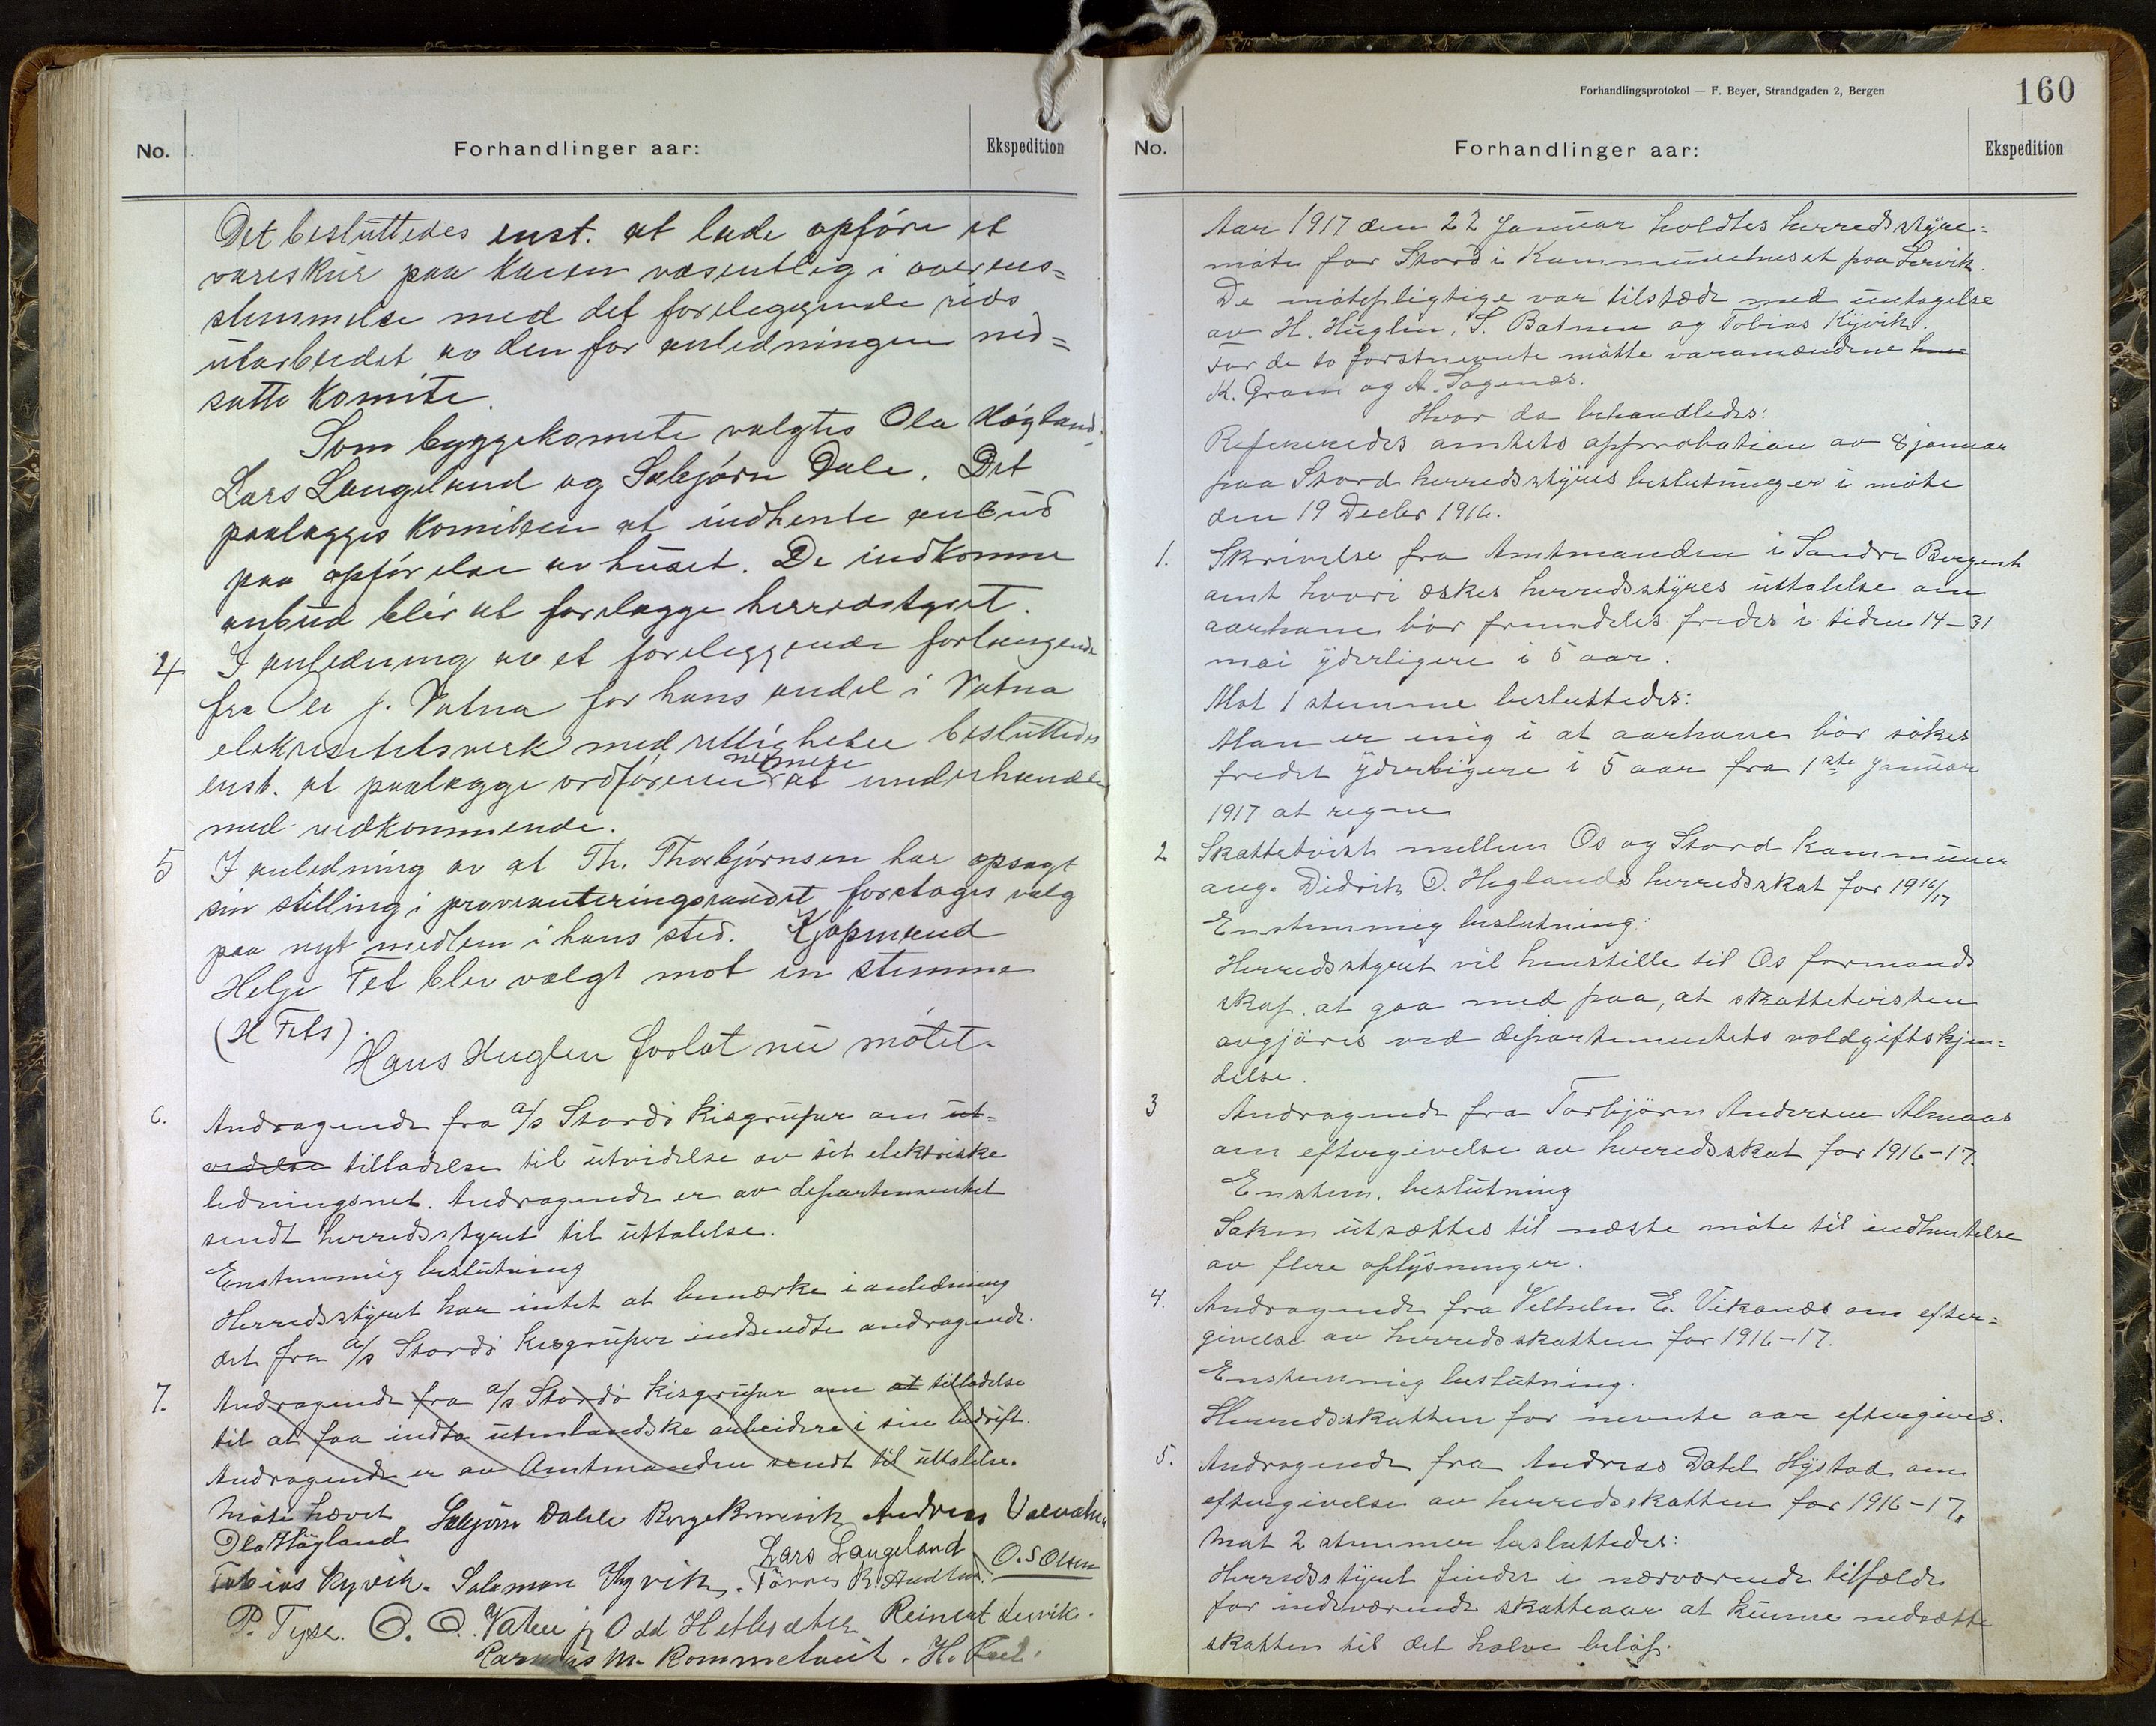 No.
Forhandlinger aar:
Ekspedition
Det besluttedes enst. at lade opføre et
vareskur paa Kaien væsentlig i overens=
stemmelse med det foreleggende rids
utarbeidet av den for anledningen ned=
satte Komite.
Som byggekomite valgtes Ola Høgland,
Lars Langeland og Sæbjørn Dale. Det
paalægges Komiteen at indhente anbud
paa opførelse av huset. De indkomne
anbud blir at forelægge herredstyret.
4 I anledning av et foreleggende forlangende
fra Ole J. Vatna for hans andel i Vatna
elekricitetsverk med rettigheter besluttedes
enst. at paalægge ordføreren nermere at underhandle
med vedkommende.
5 I anledning av at Th. Thorbjørnsen har opsagt
sin stilling i provianteringsraadet foretages valg
paa nyt medlem i hans sted. Kjøpmand
Helge Fet blev valgt mot en stemme
(H Fets).
Hans Huglen forlot nu møtet.
6. Andragende fra A/s Stordø Kisgruper om ut=
videlse tilladelse til utvidelse av sit elektriske
ledningsnet. Andragende er av departementet
sendt herredsstyret til uttalelse.
Enstemmig beslutning
Herredsstyret har intet at bemærke i anledning
det fra A/s Stordø Kisgruper indsendte andragende.
7. Andragende fra A/s Stordø Kisgruper om at tilladelse
til at faa indta utenlandske arbeidere i sin bedrift.
Andragende er av Amtmanden sendt til uttalelse.
Møte hævet Sæbjørn Dahle Andreas Valvatna
Ola Høgland Lars Langeland O. S Olsen
Tobias Kyvik. Salamon Kyvik. Tønnes
P. Tyse. O. O. Vatna jr Odd Hetlesæter Reinert Lervik.
Rasmus M. Rommetveit. H. Fet.
Forhandlingsprotokol — F. Beyer, Strandgaden 2, Bergen
160
No.
Forhandlinger aar:
Ekspedition
Aar 1917 den 22 Januar holdtes herredsstyre=
møte for Stord i Kommunehuset paa Lervik.
De møtepligtige var tilstæde med untagelse
av H. Huglen, S. Batnen og Tobias Kyvik.
For de to førstnevnte møtte varamændene
K. Gram og A. Sagenæs.
Hvor da behandledes:
Refereredes amtets approbation av 8 januar
paa Stord herredsstyres beslutninger i møte
den 19 Decbr 1916.
1. Skrivelse fra Amtmanden i Søndre Bergenh
amt hvori æskes herredsstyres uttalelse om
aarhane bør fremdeles fredes i tiden 14–31
mai yderligere i 5 aar.
Mot 1 stemme besluttedes:
Man er enig i at aarhane bør søkes
fredet yderligere i 5 aar fra 1ste Januar
1917 at regne
2 Skattetvist mellem Os og Stord Kommuner
ang. Didrik O. Heglands herredsskat for 1916/17
Enstemmig beslutning:
Herredsstyret vil henstille til Os formands
skap. at gaa med paa, at skattetvisten
avgjøres ved departementets voldgiftskjen=
delse.
3 Andragende fra Torbjørn Andersen Almaas
om eftergivelse av herredsskat for 1916–17.
Enstem. beslutning
Saken utsættes til næste møte til indhentelse
av flere oplysninger.
4. Andragende fra Velhelm E. Vikanæs om efter=
givelse av herredsskatten for 1916–17.
Enstemmig beslutning.
Herredsskatten for nevnte aar eftergives.
5. Andragende fra Andreas Datel Hystad om
eftergivelse av herredsskatten for 1916–17.
Mot 2 stemmer besluttedes:
Herredsstyret finder i nærværende tilfælde
for indeværende skatteaar at kunne nedsætte
skatten til det halve beløp.